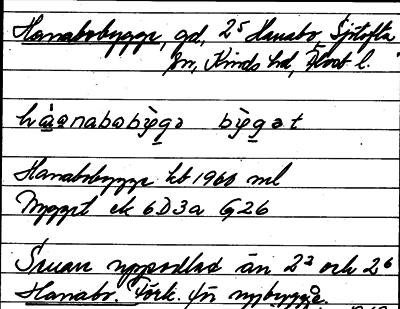 Hanabobygge, gd, 2⁵ Hanabo Sjötofta
sn, Kinds hd, Älvsb l.
Hanabobygge kb 1960 ml
Nyggt ek 6D3a G26
Senare uppodlad än 2² och 2⁶
Hanabo. Förk. för nybygge.